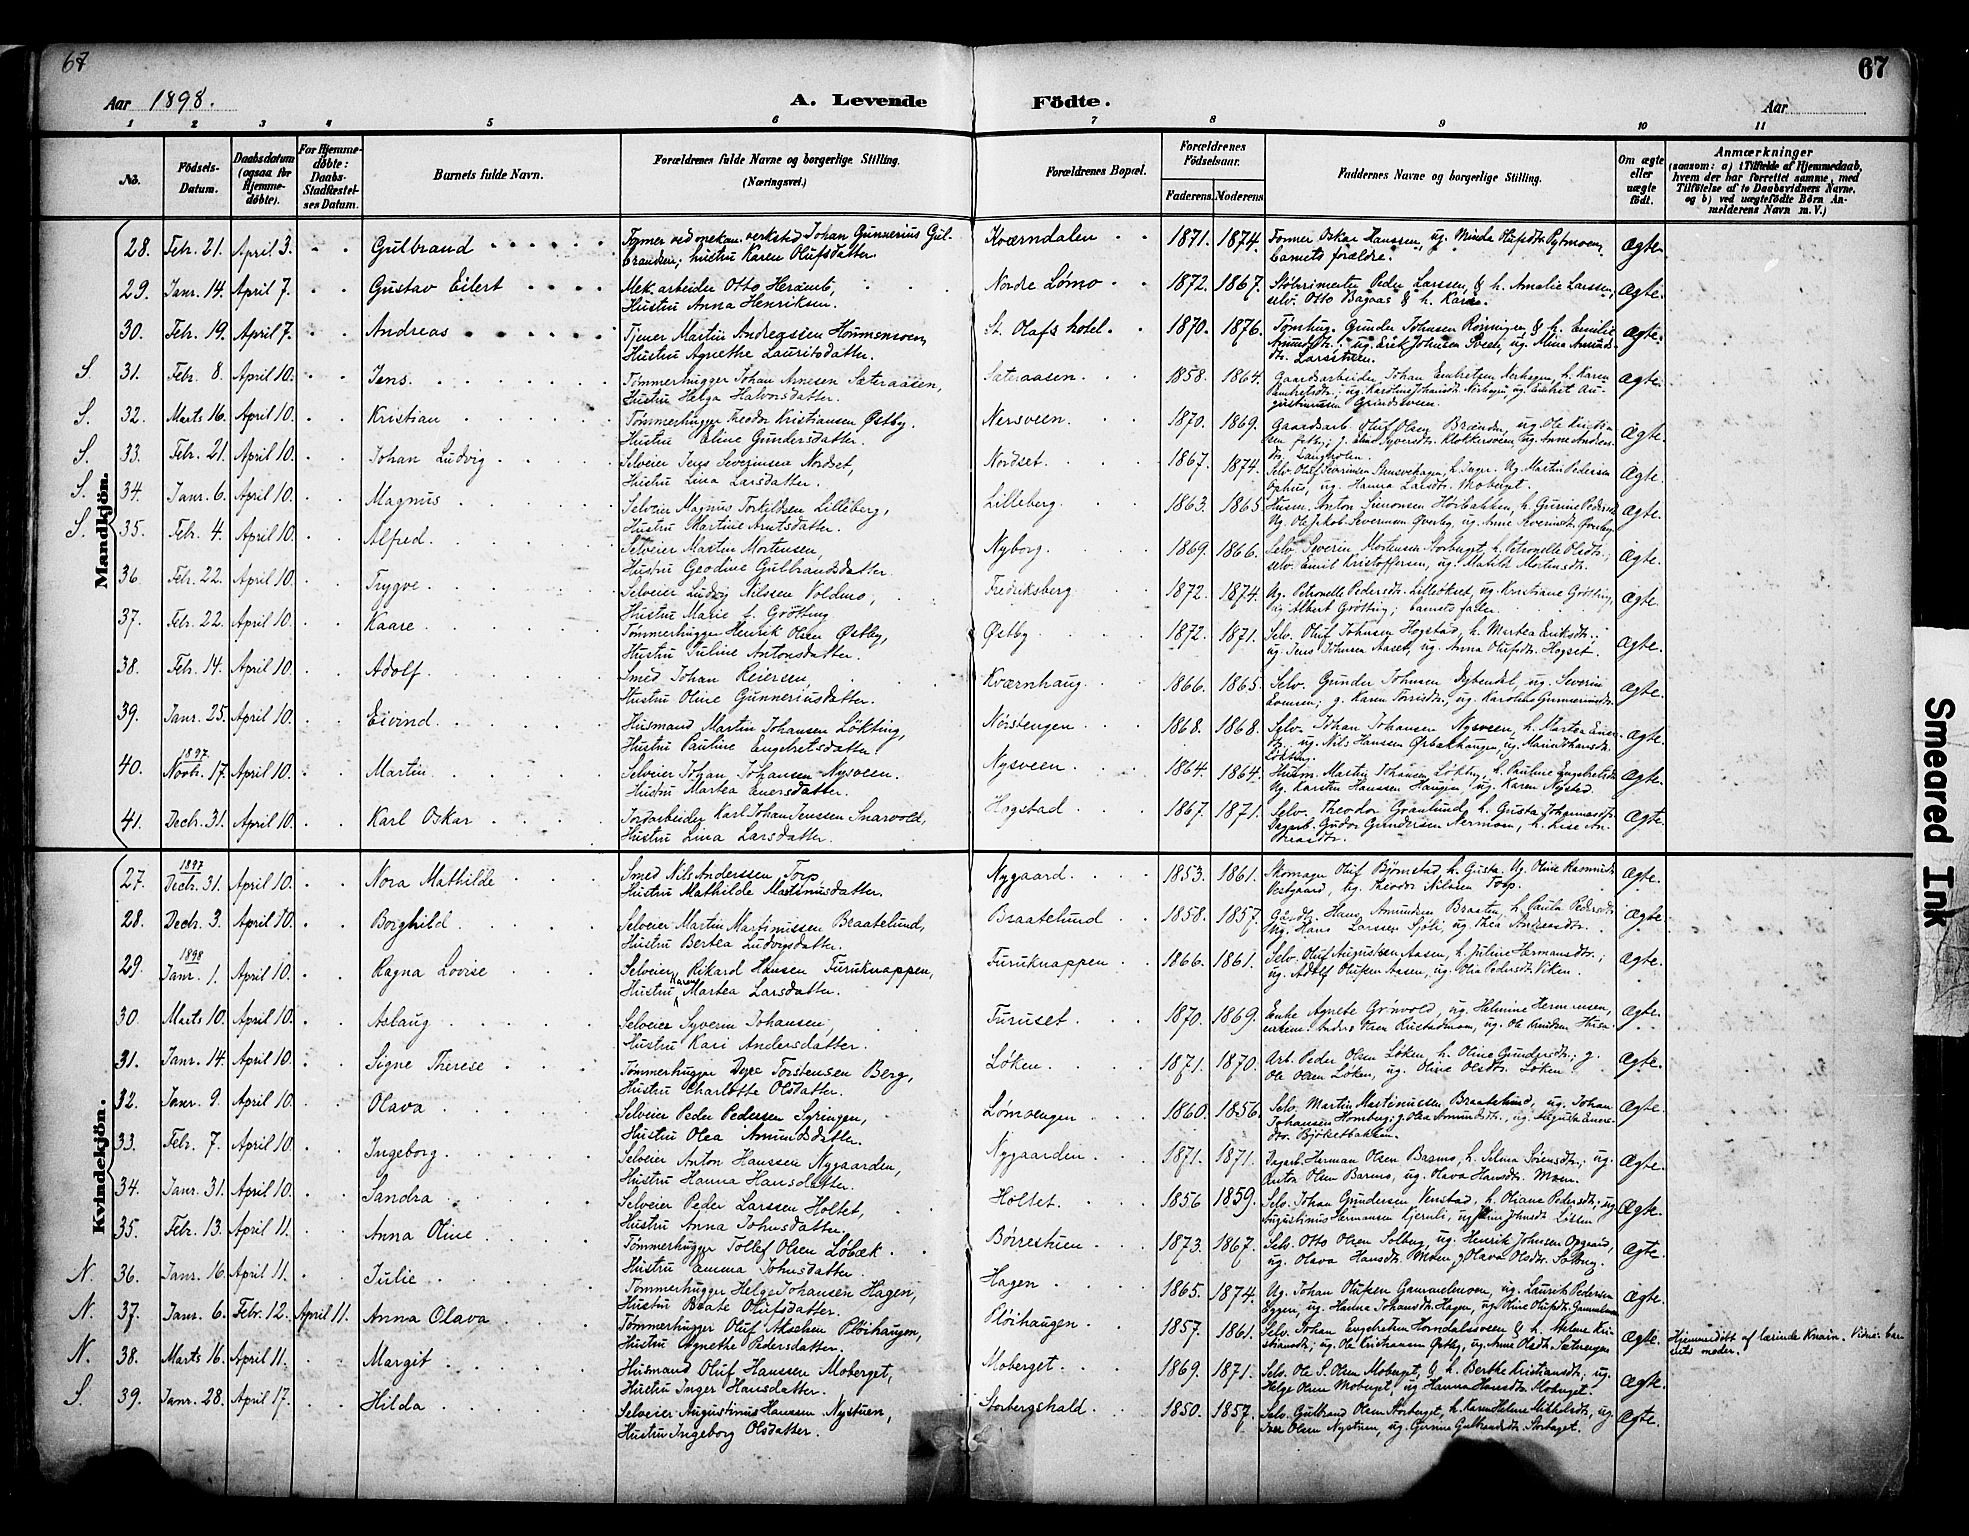 67
67
Aar 1898.
A. Levende Födte.
Aar
1 2 3 4 5 6 7 8 9 10 11
No.
Födsels-Datum.
Daabsdatum (ogsaa for Hjemme-döbte).
For Hjemme-döbte: Daabs-Stadfæstel-ses Datum.
Barnets fulde Navn.
Forældrenes fulde Navne og borgerlige Stilling. (Næringsvei.)
Forældrenes Bopæl.
Forældrenes Födselsaar.
Faderens. Moderens.
Faddernes Navne og borgerlige Stilling.
Om ægte eller uægte födt.
Anmærkninger
(saasom: a) i Tilfælde af Hjemmedaab,
hvem der har forrettet samme, med
Tilföielse af to Daabsvidners Navne.
og b) ved uægtefödte Börn An-
melderens Navn m. V.)
Mandkjön.
28. Febr. 21. April 3. Gulbrand
Former ved mekan. verksted Johan Gunnerius Gul-
brandsen; hustru Karen Olufsdatter.
Kværndalen 1871. 1874.
Former Oskar Hanssen, ug. Minda Olufsdtr. Rytmoen,
barnets forældre.
Ægte.
29. Janr. 14. April 7. Gustav Eilert
Mek. arbeider Otto Heramb,
Hustru Anna Henriksen.
Nordre Lømo 1872. 1867.
Peder Larssen, & h. Amalie Larssen,
selv. Otto Bagaas & h. Karen.
Ægte.
30. Febr. 19. April 7. Andreas
Tjener Martin Andreassen
Hustru Agnethe Lauritsdatter.
St. Olafs hotel. 1870. 1876.
Tømhug. Gunder Johnsen Rønningen, & h. Emilie
ug. Erik Johnsen Sveen, ug. Alina Amunds-
dtr. Larsstuen.
Ægte.
S. 31. Febr. 8. April 10. Jens.
Tømmerhugger Johan Arnesen Sæteraasen,
Hustru Helga Halvorsdatter.
Sæteraasen 1858. 1864.
Gaardsarbeider Johan Embretsen Nerhagen, h. Karen
Embretsdtr.; ug. Johansdtr. Nerhagen, ug. Embret Au-
gustinussen Grindsveen.
Ægte.
S. 32. Marts 16. April 10. Kristian
Tømmerhugger Theodor Kristiansen Østby.
Hustru Eline Gundersdatter.
Nersveen. 1870. 1869.
Gaardsarb. Oluf Olsen Brænden, ug. Ole Kristian-
sen Østby; Syversdtr. Klokkersveen, ug. Anne Andrea
Langholen.
Ægte.
S. 33. Febr. 21. April 10. Johan Ludvig
Selveier Jens Severinsen Nordset,
Hustru Lina Larsdatter.
Nordset. 1867. 1874.
Selv. Oluf Severinsen h. Inger. Ug. Martin Pedersen
Ophus, ug. Hanna Larsdtr. Moberget.
Ægte.
S. 34. Janr. 6. April 10. Magnus
Selveier Magnus Torkildsen Lilleberg,
Hustru Martine Arntsdatter.
Lilleberg. 1863. 1865.
Husm. Anton Simonsen Hørbakken, h. Gurine Pedersd.
Ug. Ole Jakob Severinsen Øverby, ug. Anne Severinsdtr. Øverby.
Ægte.
S. 35. Febr. 4. April 10. Alfred.
Selveier Martin Mortensen,
Hustru Geodine Gulbrandsdatter.
Nyborg. 1869. 1866.
Selv. Severin Mortensen Storberget, h. Petronelle Olsdtr.;
selv. Emil Kristoffersen, ug. Matilde Mortensdtr.
Ægte.
36. Febr. 22. April 10. Trygve.
Selveier Ludvig Nilssen Voldmo,
Hustru Marie f. Grötting
Fredriksberg 1872. 1874.
Ug. Petronelle Pedersdtr. Lilleökset, ug. Kristiane Grötting,
ug. Albert Grötting; barnets fader.
Ægte.
37. Febr. 22. April 10. Kaare.
Tømmerhugger Henrik Olsen Østby,
Hustru Juline Antonsdatter.
Østby 1872. 1871.
Selv. Oluf Johnsen Hogstad, h. Martea Eriksdtr.;
ug. Jens Johnsen Aaset, ug. Anna Olufsdtr. Hogset.
Ægte.
38. Febr. 14. April 10. Adolf.
Smed Johan Reiersen,
Hustru Oline Gunneriusdatter.
Kværnhaug 1866. 1865.
Selv. Gunder Johnsen Dybendal, ug. Severin
Evensen; g. Karen Torrisdtr., ug. Karoline Gunneriusdtr.
Ægte.
39. Janr. 25. April 10. Eivind
Husmand Martin Johansen Løkting,
Hustru Pauline Engebretsdatter.
Nørstengen 1868. 1868.
Selv. Johan Johansen Nysveen, h. Martea Einers-
dtr., ug. Nils Hanssen Ørbækhaugen, ug. Marie Johansdtr.
Løkting.
Ægte.
40. 1897 Novbr. 17. April 10. Martin
Selveier Johan Johansen Nysveen.
Hustru Martea Einersdatter.
Nysveen 1864. 1864.
Husm. Martin Johansen Løkting, h. Pauline Engebretsdtr.
Ug. Karsten Hanssen Haugen, ug. Karen Nysted.
Ægte.
41. Decbr. 31. April 10. Karl Oskar
Jordarbeider Karl Johan Jenssen Snarvold,
Hustru Lina Larsdatter.
Hogstad 1867. 1871.
Selv. Theodor Granlund, h. Gusta Johannesdtr.
Dagarb. Gudor Gundersen Nermoen, h. Lise An-
dreasdtr.
Ægte.
Kvindekjön.
27. 1897 Decbr. 31. April 10. Nora Mathilde
Smed Nils Anderssen Torp,
Hustru Mathilde Martinusdatter.
Nygaard. 1853. 1861.
Skomager Oluf Bjørnstad, h. Gusta. Ug. Oline Rasmusdtr
Østgaard, ug. Theodor Nilssen Torp.
Ægte.
28. Decbr. 3. April 10. Borghild
Selveier Martin Martinussen Braatelund,
Hustru Bertea Ludvigsdatter.
Braatelund 1858. 1857.
Gaardb. Hans Amundsen Braaten, h. Paula Pedersdtr.
Ug. Hans Larssen Sjöli, ug. Thea Andersdtr.
Ægte
29. 1898 Janr. 1. April 10. Ragna Lovise
Selveier Rikard Hansen Furuknappen,
Hustru Karen Martea Larsdatter.
Furuknappen 1866. 1861.
Selv. Oluf Augustsen Aasen, h. Juline Hermansdtr.;
ug. Adolf Olufsen Aasen, ug. Olia Pedersdtr. Viken.
Ægte.
30. Marts 10. April 10. Aslaug
Selveier Syverin Johansen,
Hustru Kari Andersdatter.
Furuset. 1870. 1869.
Enke Agnete Grönvold, ug. Helmine Hermansen,
Anders Olsen Kristadmoen, ug. Ole Knudsen
Ægte.
31. Janr. 14. April 10. Signe Therese
Tømmerhugger Torstensen Berg,
Hustru Charlotte Olsdatter.
Løken. 1871. 1870.
Arb. Peder Olsen Løken, h. Oline Gundersdtr.; g.
Ole Olsen Løken, ug. Oline Olsdtr. Løken.
Ægte.
32. Janr. 9. April 10. Olava
Selveier Peder Pedersen Syringen,
Hustru Olea Amundsdatter.
Lømoengen 1860. 1856.
Selv. Martin Martinussen Braatelund, ug. Johan
Johansen Homberg; g. Olea Amundsdtr., ug. Augusta Einers-
dtr. Björketbakken.
Ægte.
33. Febr. 7. April 10. Ingeborg.
Selveier Anton Hanssen Nygaarden,
Hustru Hanna Hansdatter.
Nygaarden 1871. 1871.
Dagarb. Herman Olsen Barmo, h. Selma Sörensdtr.; ug.
Anton Olsen Barmo, ug. Olava Hansdtr. Moen.
Ægte.
34. Janr. 31. April 10. Sandra
Selveier Peder Larssen Holtet,
Hustru Anna Johnsdatter.
Holtet. 1856 1859.
Selv. Johan Gundersen Venstad, h. Oliane Pedersdtr.; ug.
Augustinus Hermansen Kjernli, ug. Johnsdtr. Løssen
Ægte.
35. Febr. 13. April 11. Anna Oline
Tømmerhugger Tollef Olsen Løbæk.
Hustru Emma Johnsdatter.
Børrestuen 1873. 1867.
Selv. Otto Olsen Solberg, ug. Henrik Johnsen Opgaard,
ug. Olava Hansdtr. Moen, g. Olava Olsdtr. Solberg.
Ægte.
N. 36. Janr. 16. April 11. Julie
Tømmerhugger Helge Johansen Hagen,
Hustru Beate Olufsdatter.
Hagen 1865. 1874.
Ug. Johan Olufsen Gammelmoen, ug. Laurits Pedersen
Eggen, ug. Hanna Johansdtr. Hagen, ug. Oline Olufsdtr. Gammelmoen
Ægte.
N. 37. Janr. 6. Febr. 12. April 11. Anna Olava
Tømmerhugger Oluf Akselsen Pløihaugen,
Hustru Agnethe Pedersdatter.
Pløihaugen 1857. 1861.
Selv. Johan Engebretsen Horndalssveen & h. Helene Kri-
stiansdtr.; ug. Ole Kristiansen Østby, ug. Anne Olsdtr. Sæterengen
Ægte.
Hjemmedöbt af Larine Knain. Vidne: bar-
nets moder.
N. 38. Marts 16. April 11. Margit
Husmand Oluf Hanssen Moberget,
Hustru Inger Hansdatter.
Moberget 1869. 1871.
Selv. Ole S. Olsen Moberget, & h. Berthe Kristiansdtr.; ug.
Helge Olsen Moberget, ug. Hanna Hansdtr. Moberget.
Ægte.
S. 39. Janr. 28. April 17. Hilda
Selveier Augustinus Hanssen Nystuen,
Hustru Ingeborg Olsdatter.
Storbergshald. 1850. 1857.
Selv. Gulbrand Olsen Storberget, h. Karen Helene Mikkelsdtr., ug.
Iver Olsen Nystuen, ug. Gurine Gulbrandsdtr. Storberget.
Ægte.
Smeared Ink